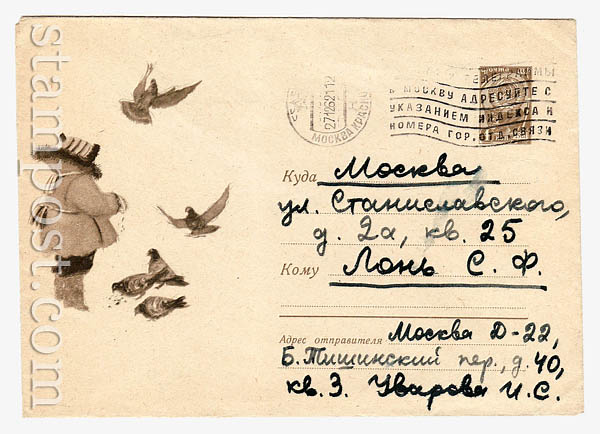 stampost.com
27126211 12
МОСКВА
ТЕЛЕГРАММЫ
В МОСКВУ АДРЕСУЙТЕ С
УКАЗАНИЕМ ИНДЕКСА И
НОМЕРА ГОР. ОТД. СВЯЗИ
Куда Москва
ул. Станиславского,
д. 2а, кв. 25
Кому Лонь С. Ф.
Адрес отправителя Москва Д-22,
Б. Тишинский пер., д. 40,
кв. 3. Уварова И. С.